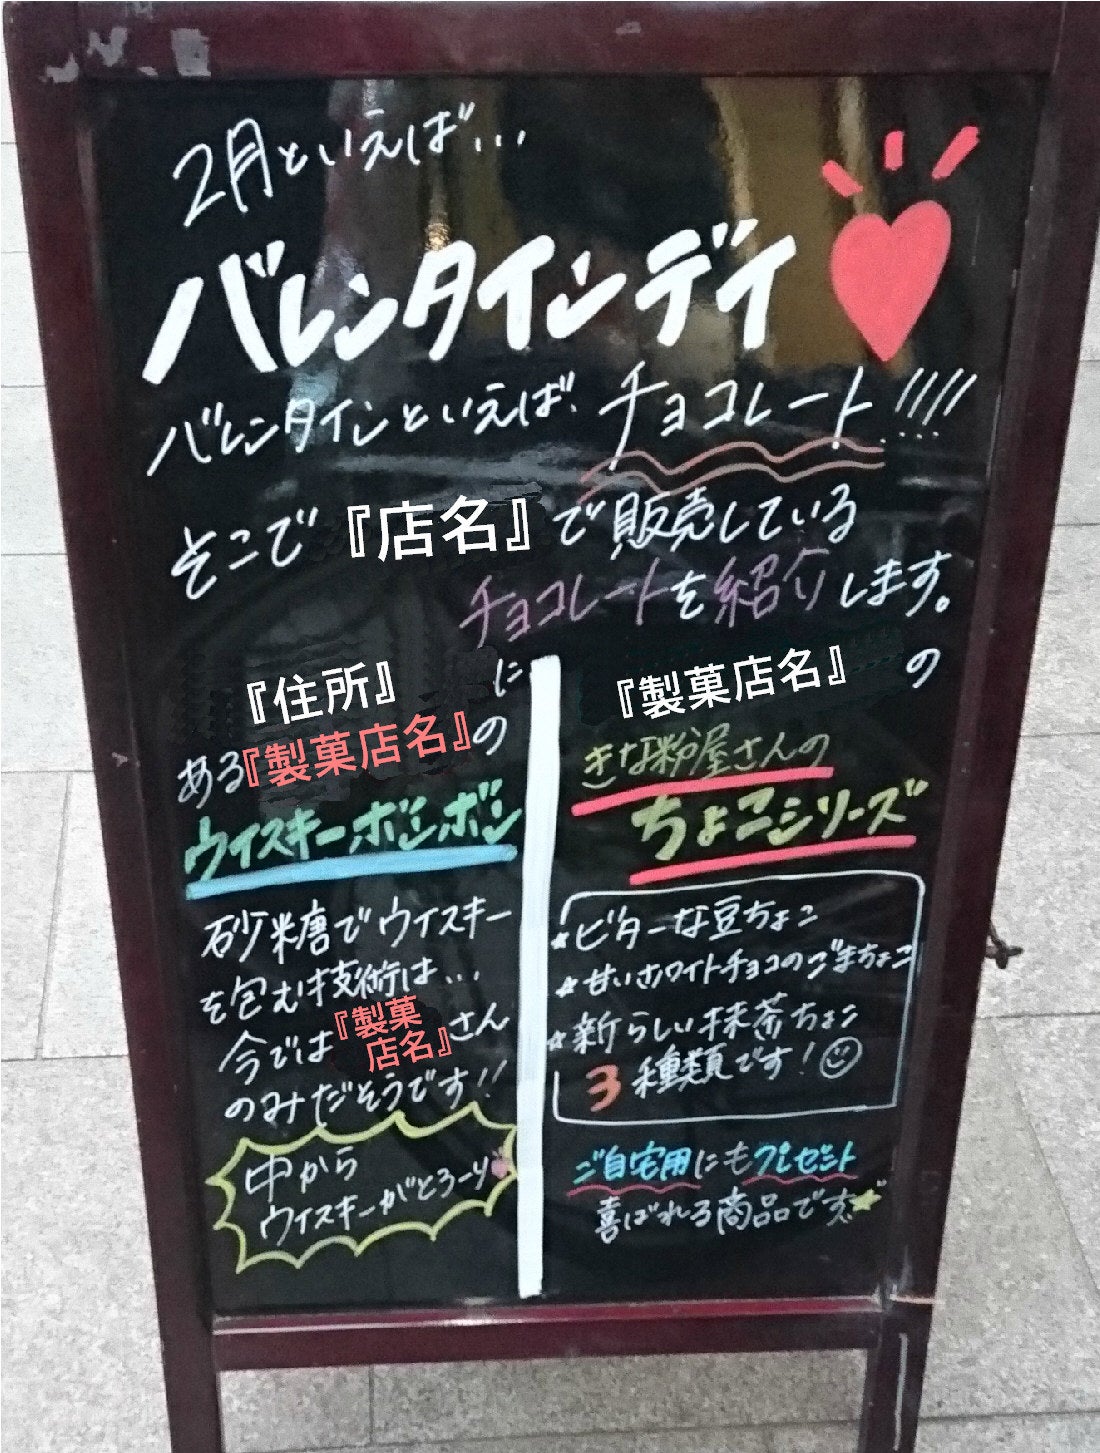 2月といえば...
バレンタインデイ
バレンタインといえば、チョコレート!!!!
そこで『店名』で販売している
チョコレートを紹介します。
『住所』に
ある『製菓店名』の
ウイスキーボンボン
砂糖でウイスキー
を包む技術は...
今では『製菓
店名』さん
のみだそうです!!
中から
ウイスキーがとろーり
『製菓店名』の
きな粉屋さんの
ちょこシリーズ
★ビターな豆ちょこ
★甘いホワイトチョコのごまちょこ
★新らしい抹茶ちょこ
3種類です!
ご自宅用にもプレゼント
喜ばれる商品です。